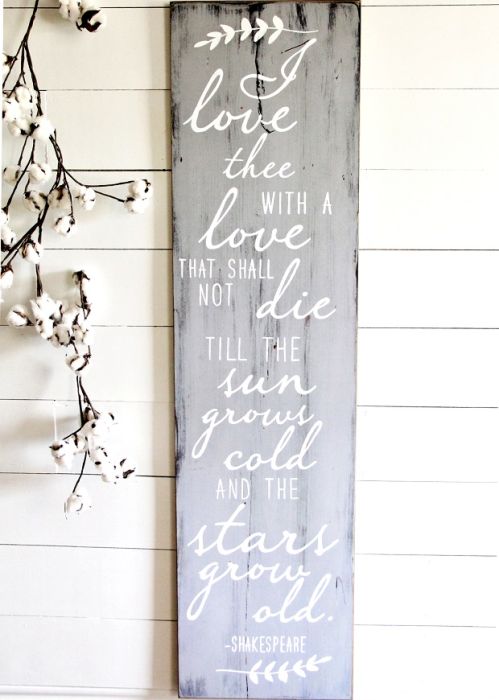 I
love
thee
WITH A
love
THAT SHALL
NOT die
TILL THE
sun
grows
cold
AND THE
stars
grow
old.
-SHAKESPEARE